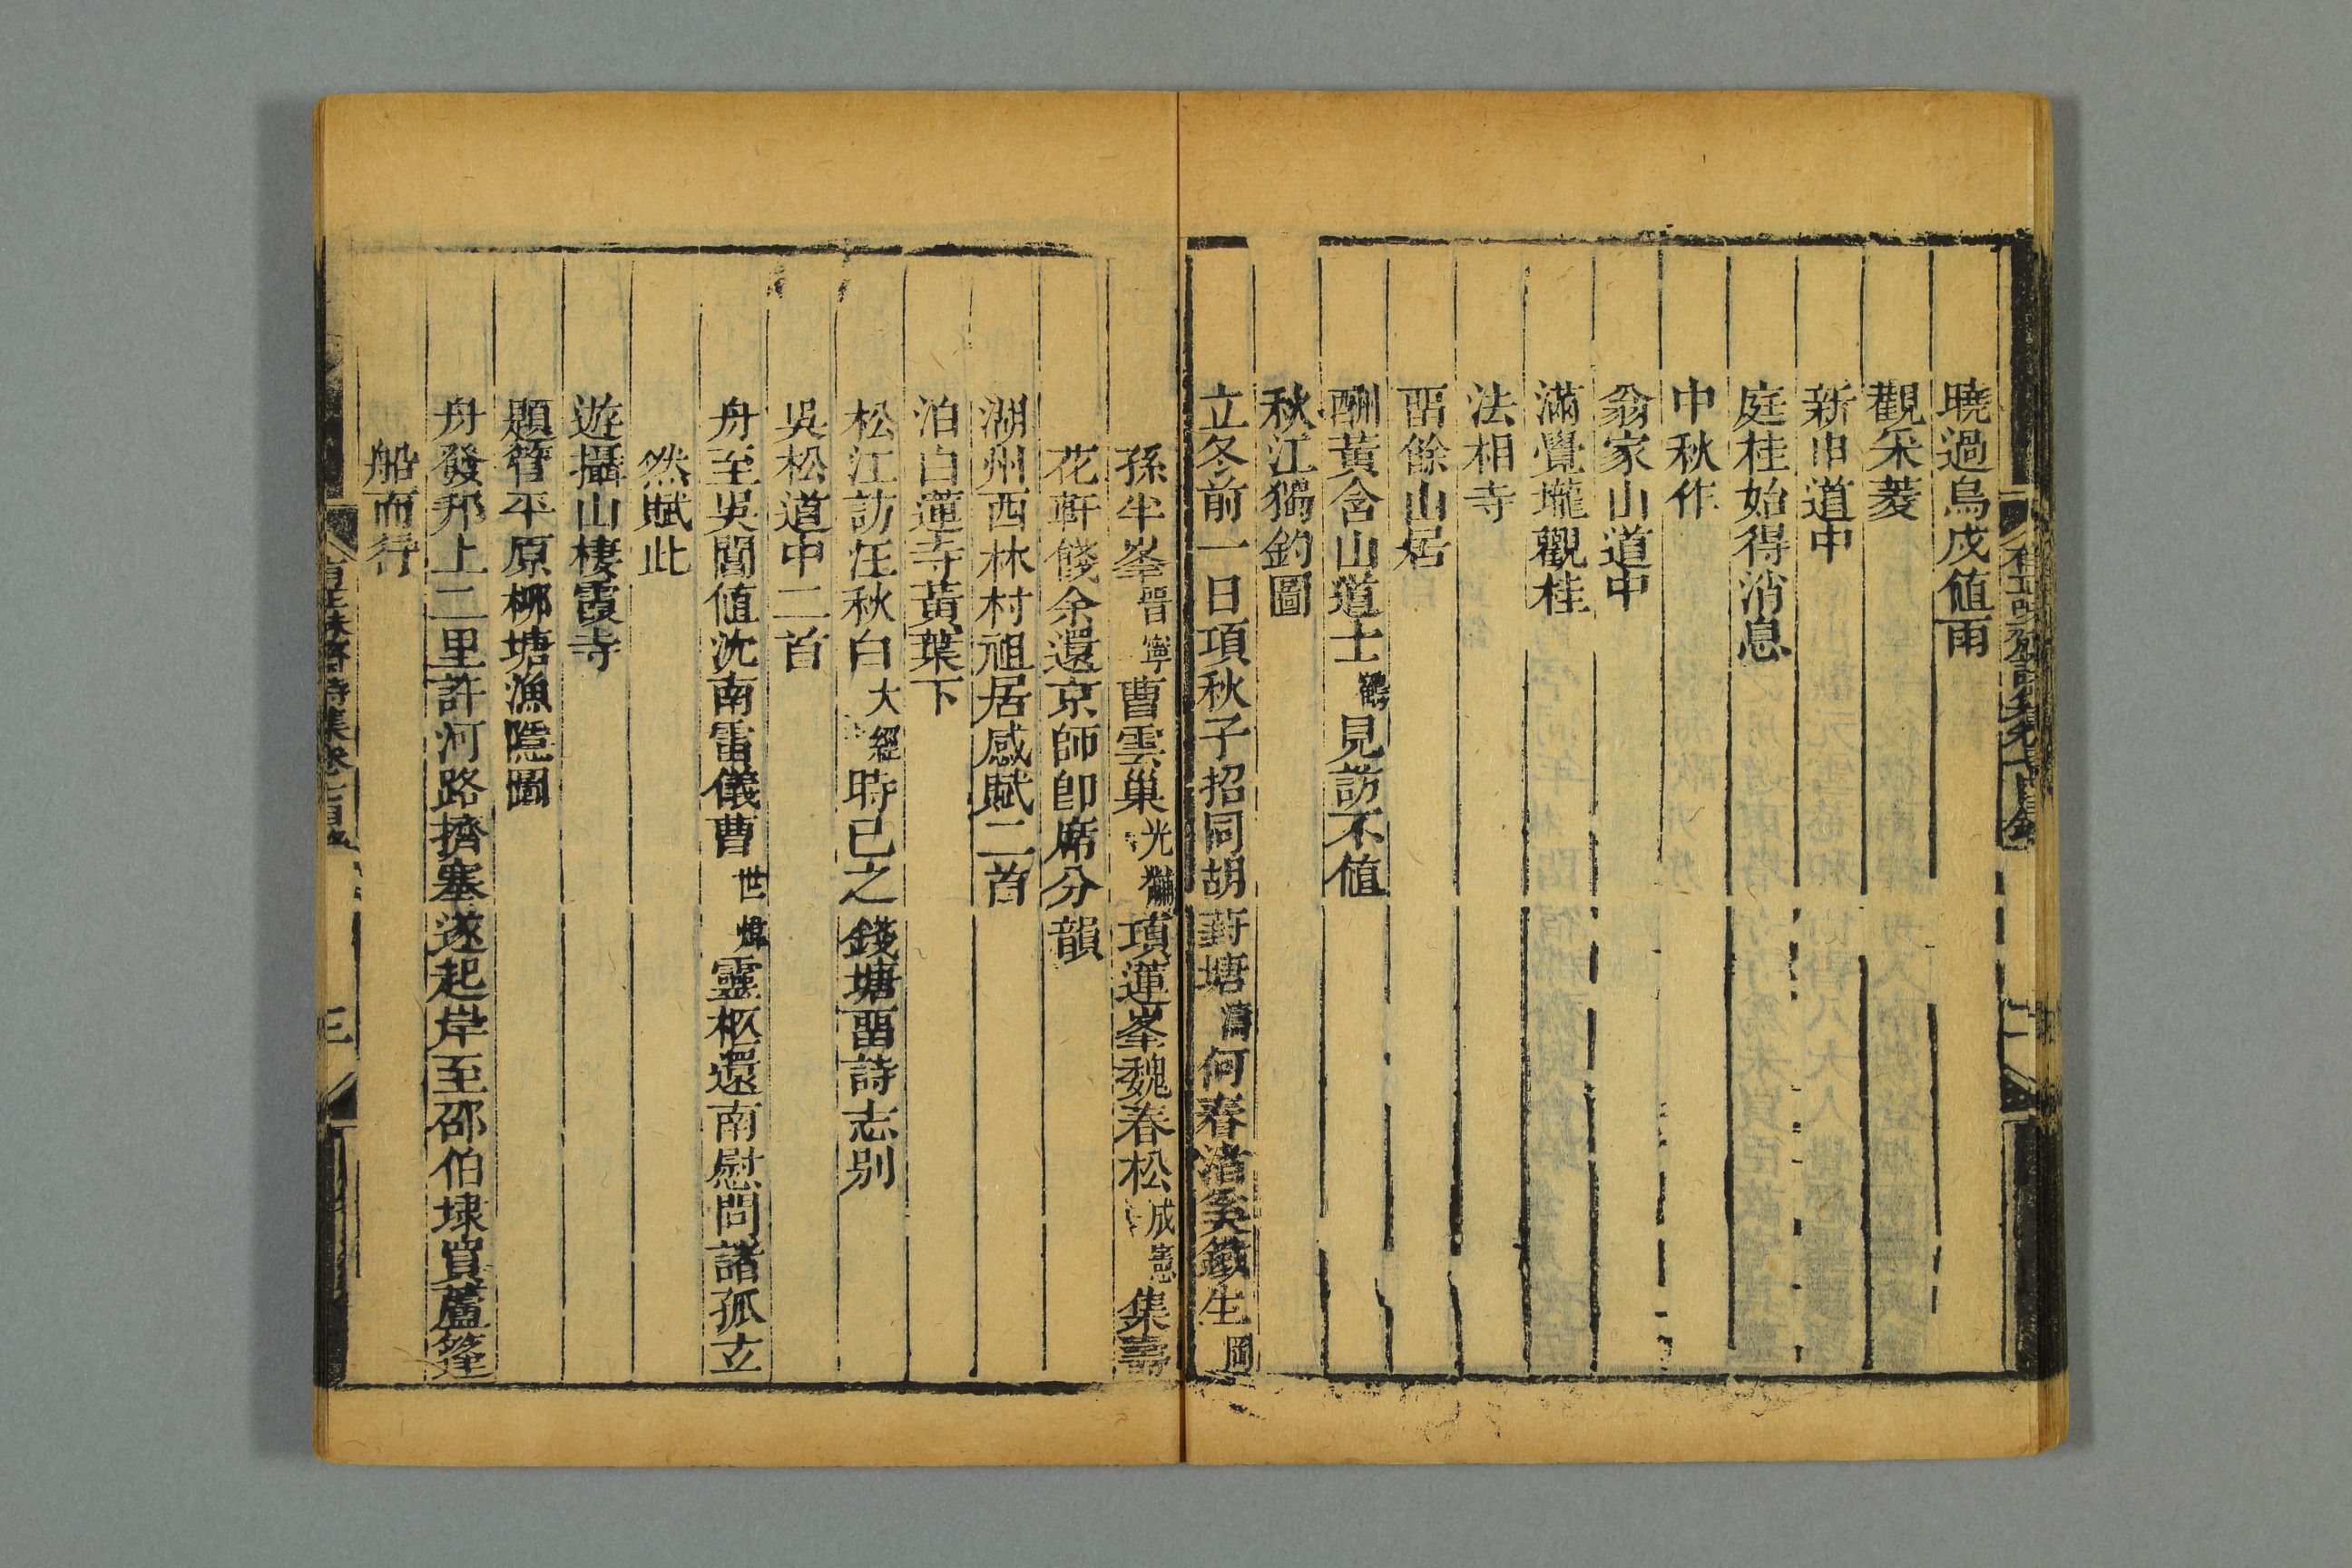 曉過烏戍値雨
觀采菱
新市道中
庭桂始得消息
中秋作
翁家山道中
滿覺壠觀桂
法相寺
畱餘山居
酬黃含山道士鶴見訪不値
秋江獨釣圖
立冬前一日項秋子招同胡葑塘濤何春渚奚鐵生岡
孫半峯晉寧曹雲巢光項蓮峯魏春松成憲集壽
花軒餞余還京師卽席分韻
湖州西林村祖居感賦二首
泊白蓮寺黃葉下
松江訪汪秋白大經時已之錢塘畱詩志别
吳松道中二首
舟至吳閶値沈南雷儀曹世煒靈柩還南慰問諸孤玄
然賦此
遊攝山棲霞寺
題管平原柳塘漁隱圖
舟發邦上二里許河路擠塞遂起岸至邵伯埭買蘆篷
船而行
三